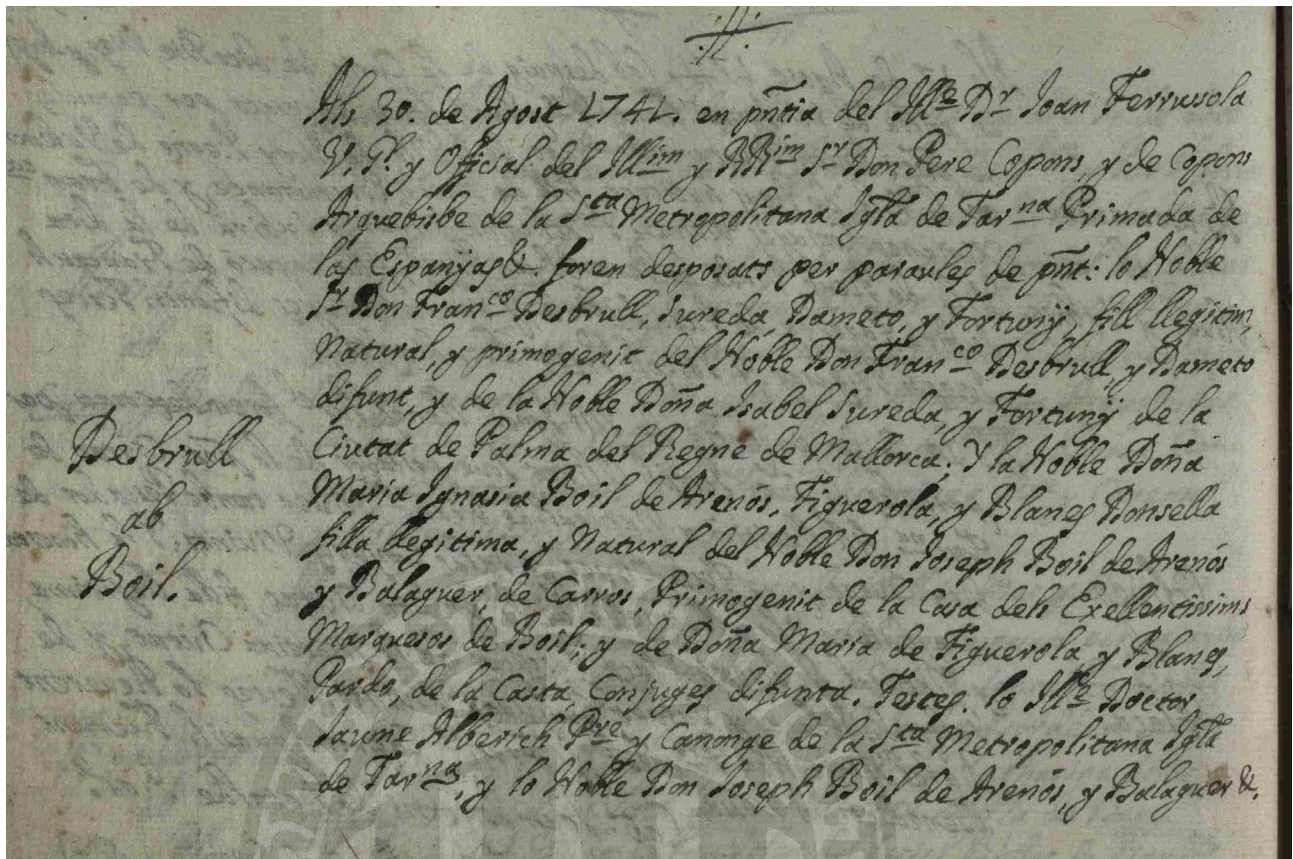 Als 30. de Agost 1741. en pñtia del Ille Dr Joan Ferrusola
V. Gl. y Official del Illim y RRim Sr Don Pere Copons, y de Copons
Arquebisbe de la Sta Metropolitana Iglã de Tarna Primada de
las Espanyas &. foren desposats per paraules de pñt: lo Noble
Sr Don Franco Desbrull, Sureda, Dameto, y Fortunÿ, fill llegitim,
Natural, y primogenit del Noble Don Franco Desbrull, y Dameto
difunt, y de la Noble Doña Isabel Sureda, y Fortunÿ de la
Ciutat de Palma del Regne de Mallorca; Y la Noble Doña
Desbrull
ab
Boil.
Maria Ignasia Boil de Arenós, Figuerola, y Blanes Donsella
filla llegitima, y Natural del Noble Don Joseph Boil de Arenós
y Balaguer, de Carros, Primogenit de la Casa dels Exellentissims
Marquesos de Boil; y de Doña Maria de Figuerola, y Blanes,
Pardo, de la Casta, Conjuges difunta. Testes. lo Ille Doctor
Jaume Alberich Pre y Canonge de la Sta Metropolitana Iglã
de Tarna, y lo Noble Don Joseph Boil de Arenós, y Balaguer &.